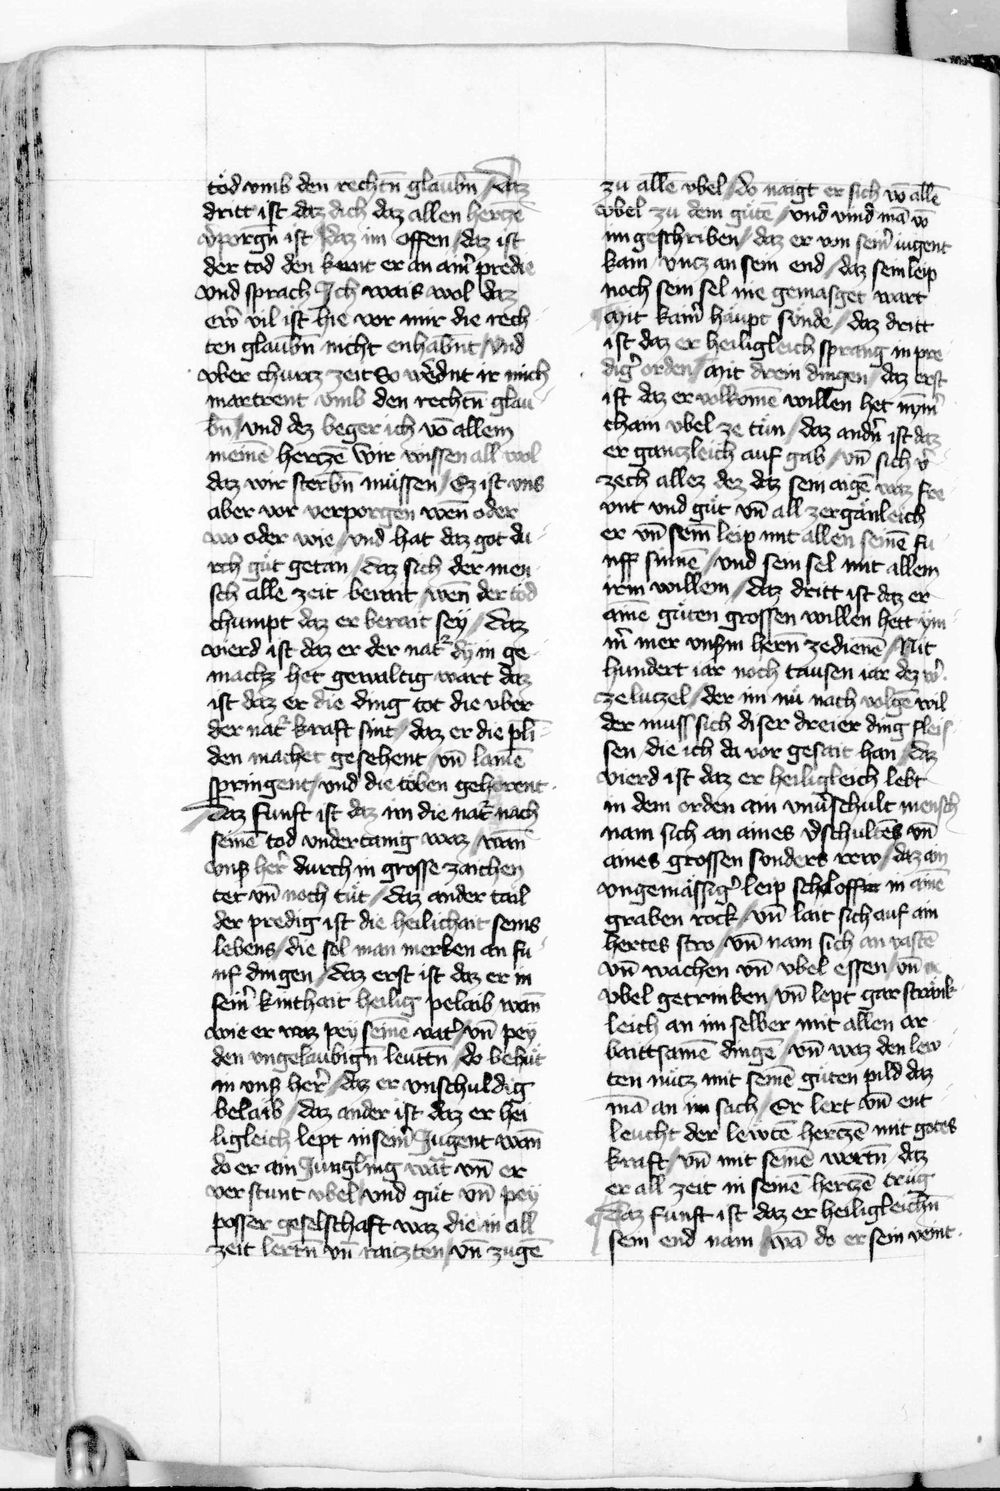 töd vmb den rechtn̄ glaubn̄ / daz
dritt ist daz dich daz allen hertzē
v̓porgn̄ ist / daz im offen / daz ist
der tod den kunt er an aim̓ predie
vnd sprach Jch wais wol daz
ew̓ vil ist hie vor mir die rech
ten glaubn̄ nicht enhabnt / vnd
vber churtz zeit So w̓dnt ir mich
martrent vmb den rechtn̄ glau
bn̄ / vnd dez beger ich vō allem
meinē hertzē wir wissen all wol
daz wir sterbn̄ müssen / Ez ist vns
aber vor verporgen wen̄ oder
wo oder wie / vnd hat daz got du
rch güt getan / daz sich der men
sch alle zeit berait / wen̄ der töd
chumpt daz er berait sey / daz
vierd ist daz er der nat̓ dy in ge
machz het gewaltig wart daz
ist daz er die ding tot die vber
der nat̓ kraft sint / daz er die plī
den machet gesehent / vn̄ lamē
springent / vnd die töben gehorent
Daz funft ist daz im die nat̓ nach
seinē tod vndertanig waz / wan̄
vnß her̓ durch in grosse zaichen
tet vn̄ noch tüt / daz ander tail
der predig ist die heilichait seins
lebens / die sol man merken an fu
nf dingen / daz erst ist daz er in
sein̓ kinthait heilig pelaib wan̄
wie er waz pey seinē vat̓ / vn̄ pey
den vngelaubign̄ leuttn̄ / do behüt
in vnß her̓ / daz er vnschuldig
belaib / daz ander ist daz er hei
ligleich lept in sein̓ Jugent wan̄
do er ain Jungling wāt vn̄ er
verstunt vbel / vnd güt vn̄ pey
posser geselschaft waz die in all
zeit lertn̄ vn̄ raitzten / vn̄ zugē
zu allē vbel / do naigt er sich vō allē
vbel zu dem gütē / vnd vind mā vō
im geschriben / daz er von sein̓ iugent
kam vntz an sein end / daz sein leip
noch sein sel nie gemasget wart
mit kain̓ haupt sünde / daz dritt
ist daz er heiligleich sprang in pre
dig̓ orden / mit drein dingen / daz erst
ist daz er volkomē willen het nym̓
chain vbel ze tün / daz andn̓ ist daz
er gantzleich auf gab / vn̄ sich v̓
zech allez dez daz sein aigē waz fre
vnt vnd güt vn̄ all zergänleich
er vn̄ sein̄ leip mit allen seinē fu
nff sinnē / vnd sein sel mit allem
irm willem / daz dritt ist daz er
ainē güten grossen willen hett ym
m̓ mer vnßm hern̄ ze dienē / Nit
hundert iar noch tausen iar dez w̓
ze lutzel / der im nü nach volgē wil
der muss sich diser dreier ding fleis
sen die ich da vor gesait han / daz
vierd ist daz er heiligleich lebt
in dem orden ain vnv̓schult mensch
nam sich an aines v̓schultēs vn̄
aines grossen sunders rew / daz ain
vngemässig̓ leip schloff in ainē
graben rock / vn̄ lait sich auf ain
hertes stro / vn̄ nam sich an vastē
vn̄ wachen vn̄ vbel essen / vn̄
vbel getrinken / vn̄ lept gar stränk
leich an im selber mit allen ar
baittsamē dingē / vn̄ waz den lew
ten nütz mit seinē güten pild daz
mā an im sach / Er lert vn̄ ent
leucht der lewtē hertzē mit gotes
kraft / vn̄ mit seinē wortn̄ / daz
er all zeit in seinē hertzē trüg
Daz funft ist daz er heiligleichn̄
sein end nam / wā do er sein veint